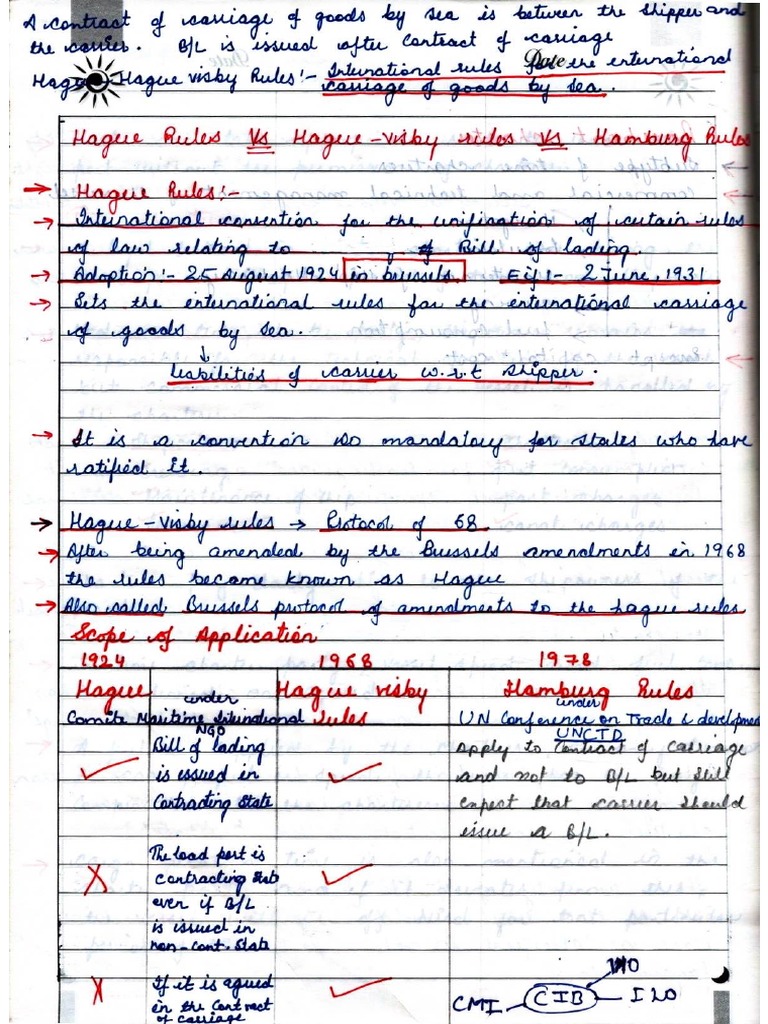 A contract of carriage of goods by sea is between the shipper and
the carrier. B/L is issued after contract of carriage
Date
Hague - Hague visby Rules:- International rules for the international
carriage of goods by sea.
Hague Rules Vs Hague-visby rules Vs Hamburg Rules
Hague Rules:-
International convention for the unification of certain rules
of law relating to of Bill of lading.
Adoption:- 25 August 1924 in brussels. Eif:- 2 June, 1931
Sets the international rules for the international carriage
of goods by sea.
liabilities of carrier w.r.t shipper.
It is a convention so mandatory for states who have
ratified it.
Hague-visby rules → Protocol of 68
After being amended by the Brussels amendments in 1968
the rules became known as Hague
Also called Brussels protocol of amendments to the hague rules
Scope of Application
1924 1968 1978
Hague under Hague visby Hamburg Rules
Comite Maritime International rules under UN Conference on Trade & development
NGO UNCTD
Bill of lading
is issued in
Contracting State
apply to contract of carriage
and not to B/L but still
expect that carrier should
issue a B/L.
The load port is
contracting state
even if B/L
is issued in
non-cont. state
If it is agreed
in the contract
of carriage
IMO
CMI CIB ILO